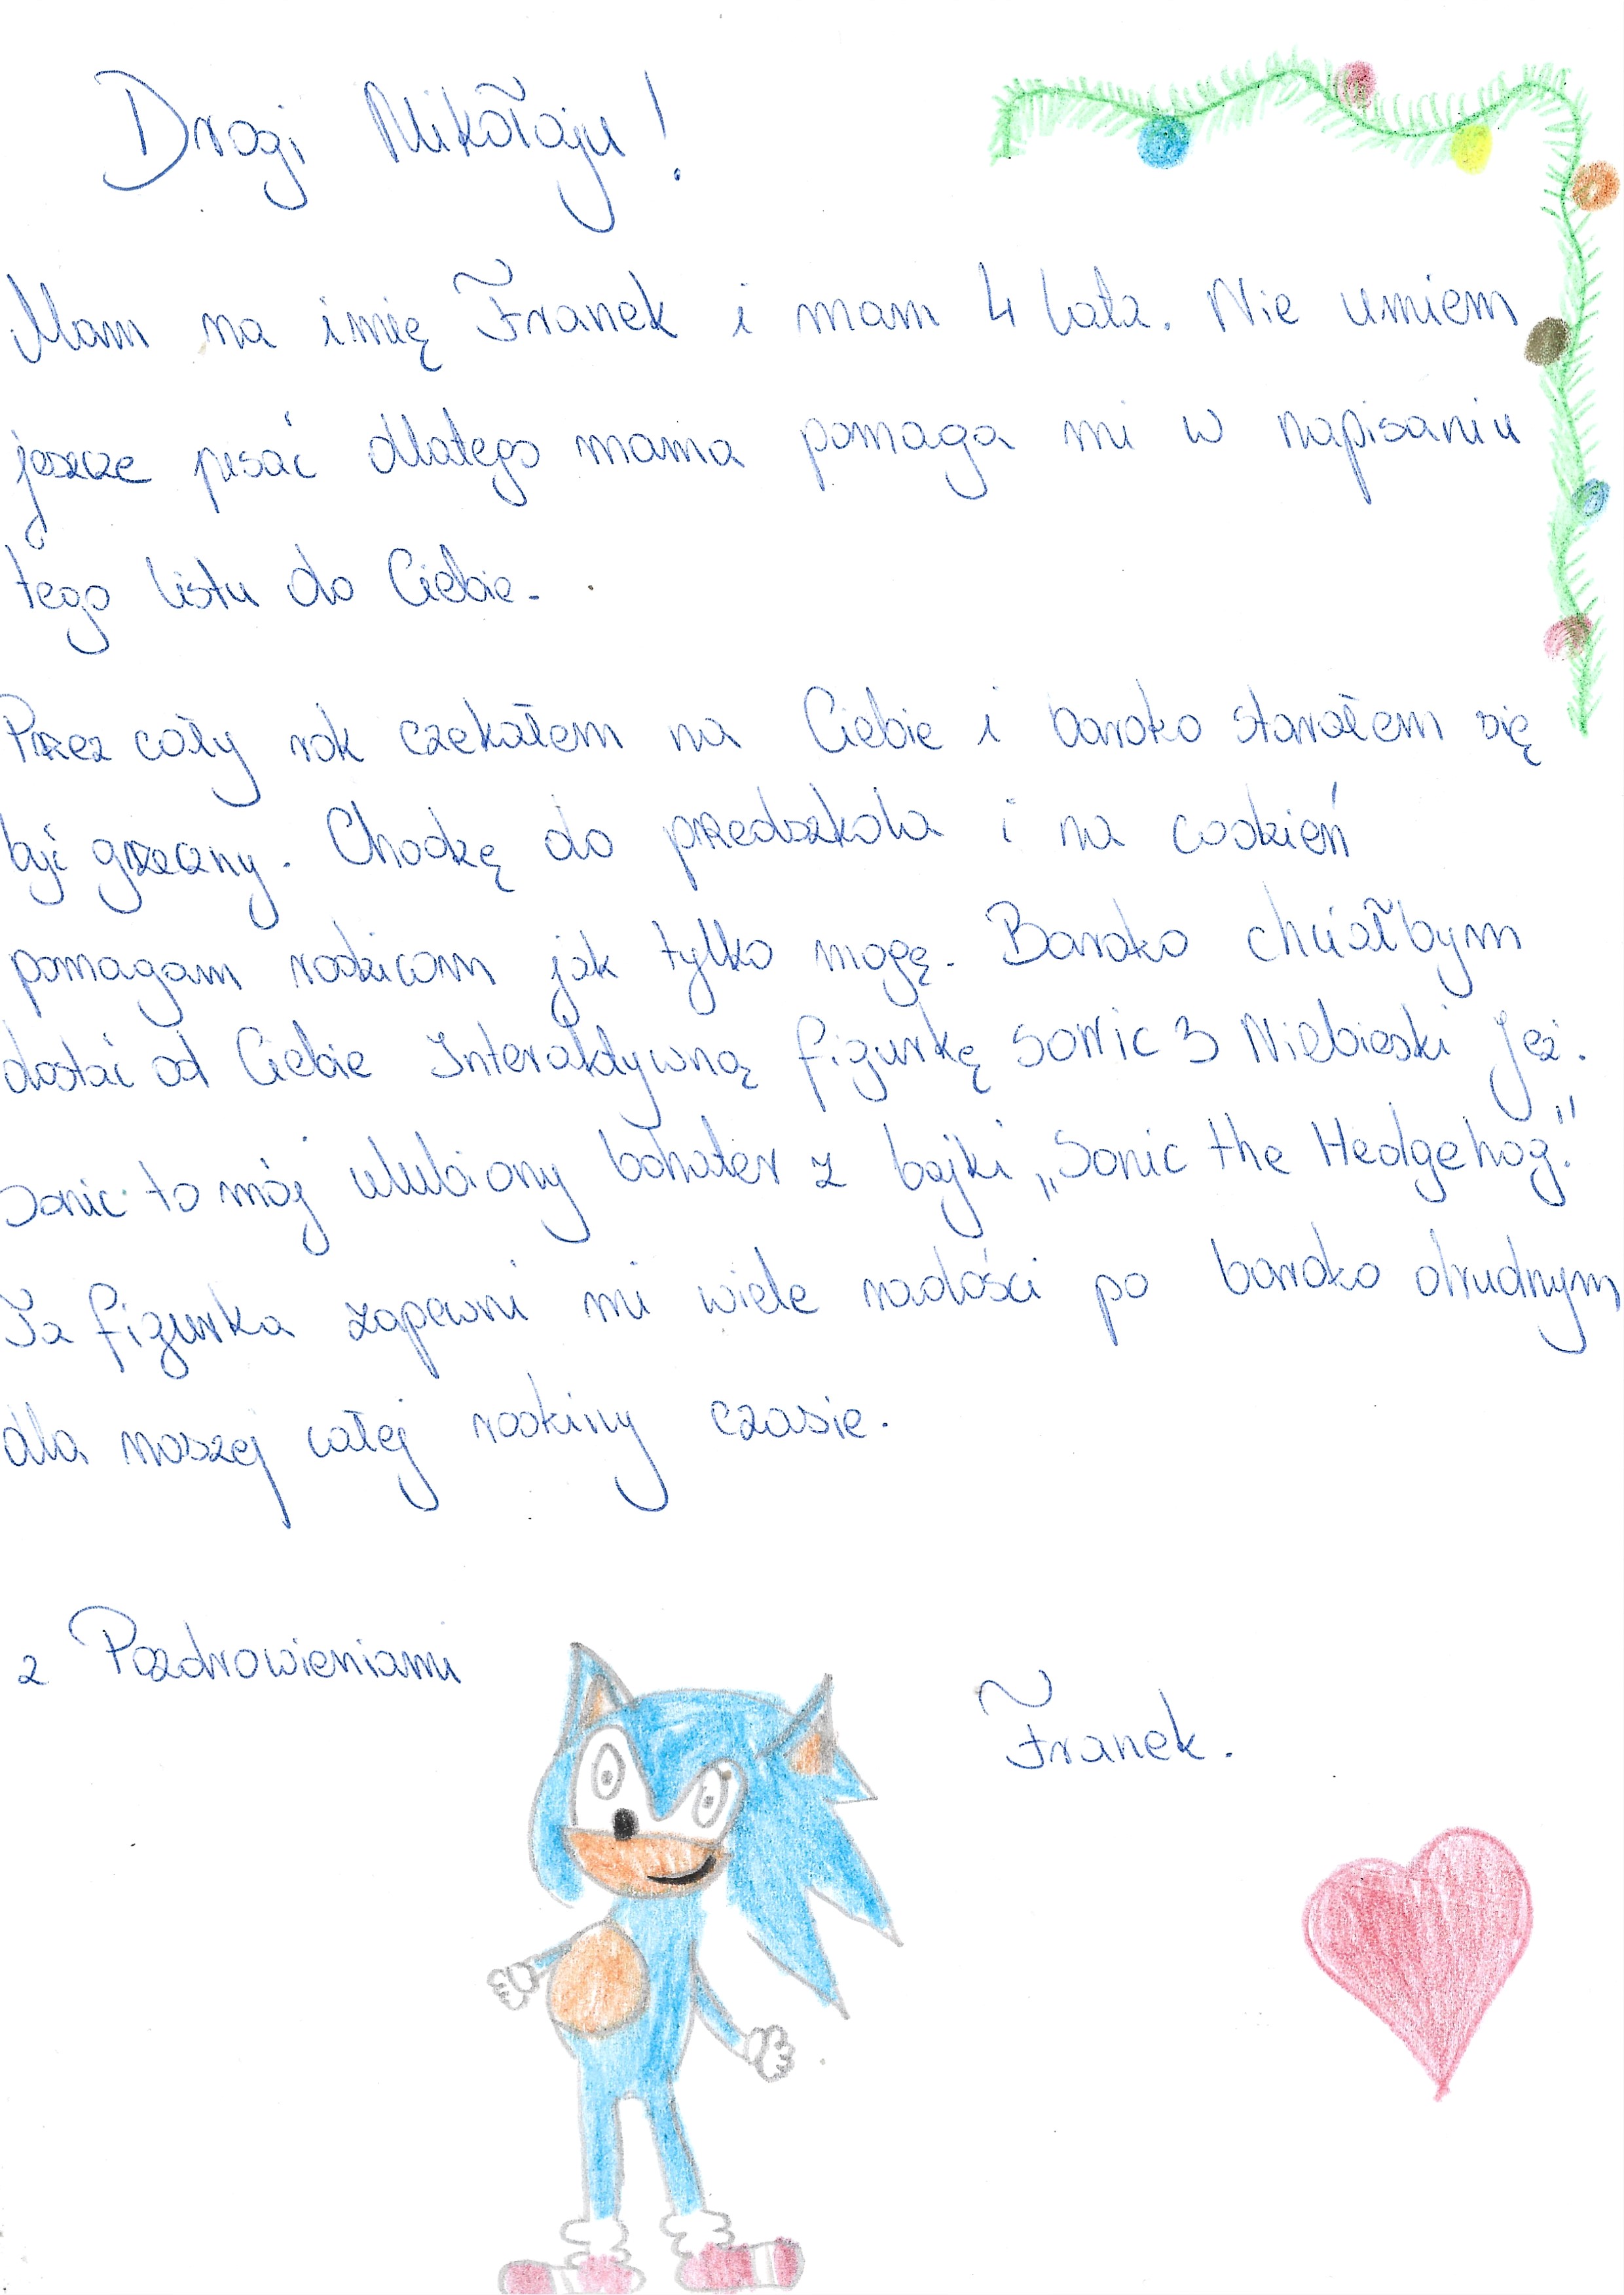 Drogi Mikołaju!
Mam na imię Franek i mam 4 lata. Nie umiem
jeszcze pisać dlatego mama pomaga mi w napisaniu
tego listu do Ciebie.
Przez cały rok czekałem na Ciebie i bardzo starałem się
być grzeczny. Chodzę do przedszkola i na codzień
pomagam rodzicom jak tylko mogę. Bardzo chciałbym
dostać od Ciebie Interaktywną figurkę SONIC 3 Niebieski Jeż.
Sonic to mój ulubiony bohater z bajki „Sonic the Hedgehog."
Ta figurka zapewni mi wiele radości po bardzo drudnym
dla naszej całej rodziny czasie.
z Pozdrowieniami
Franek.